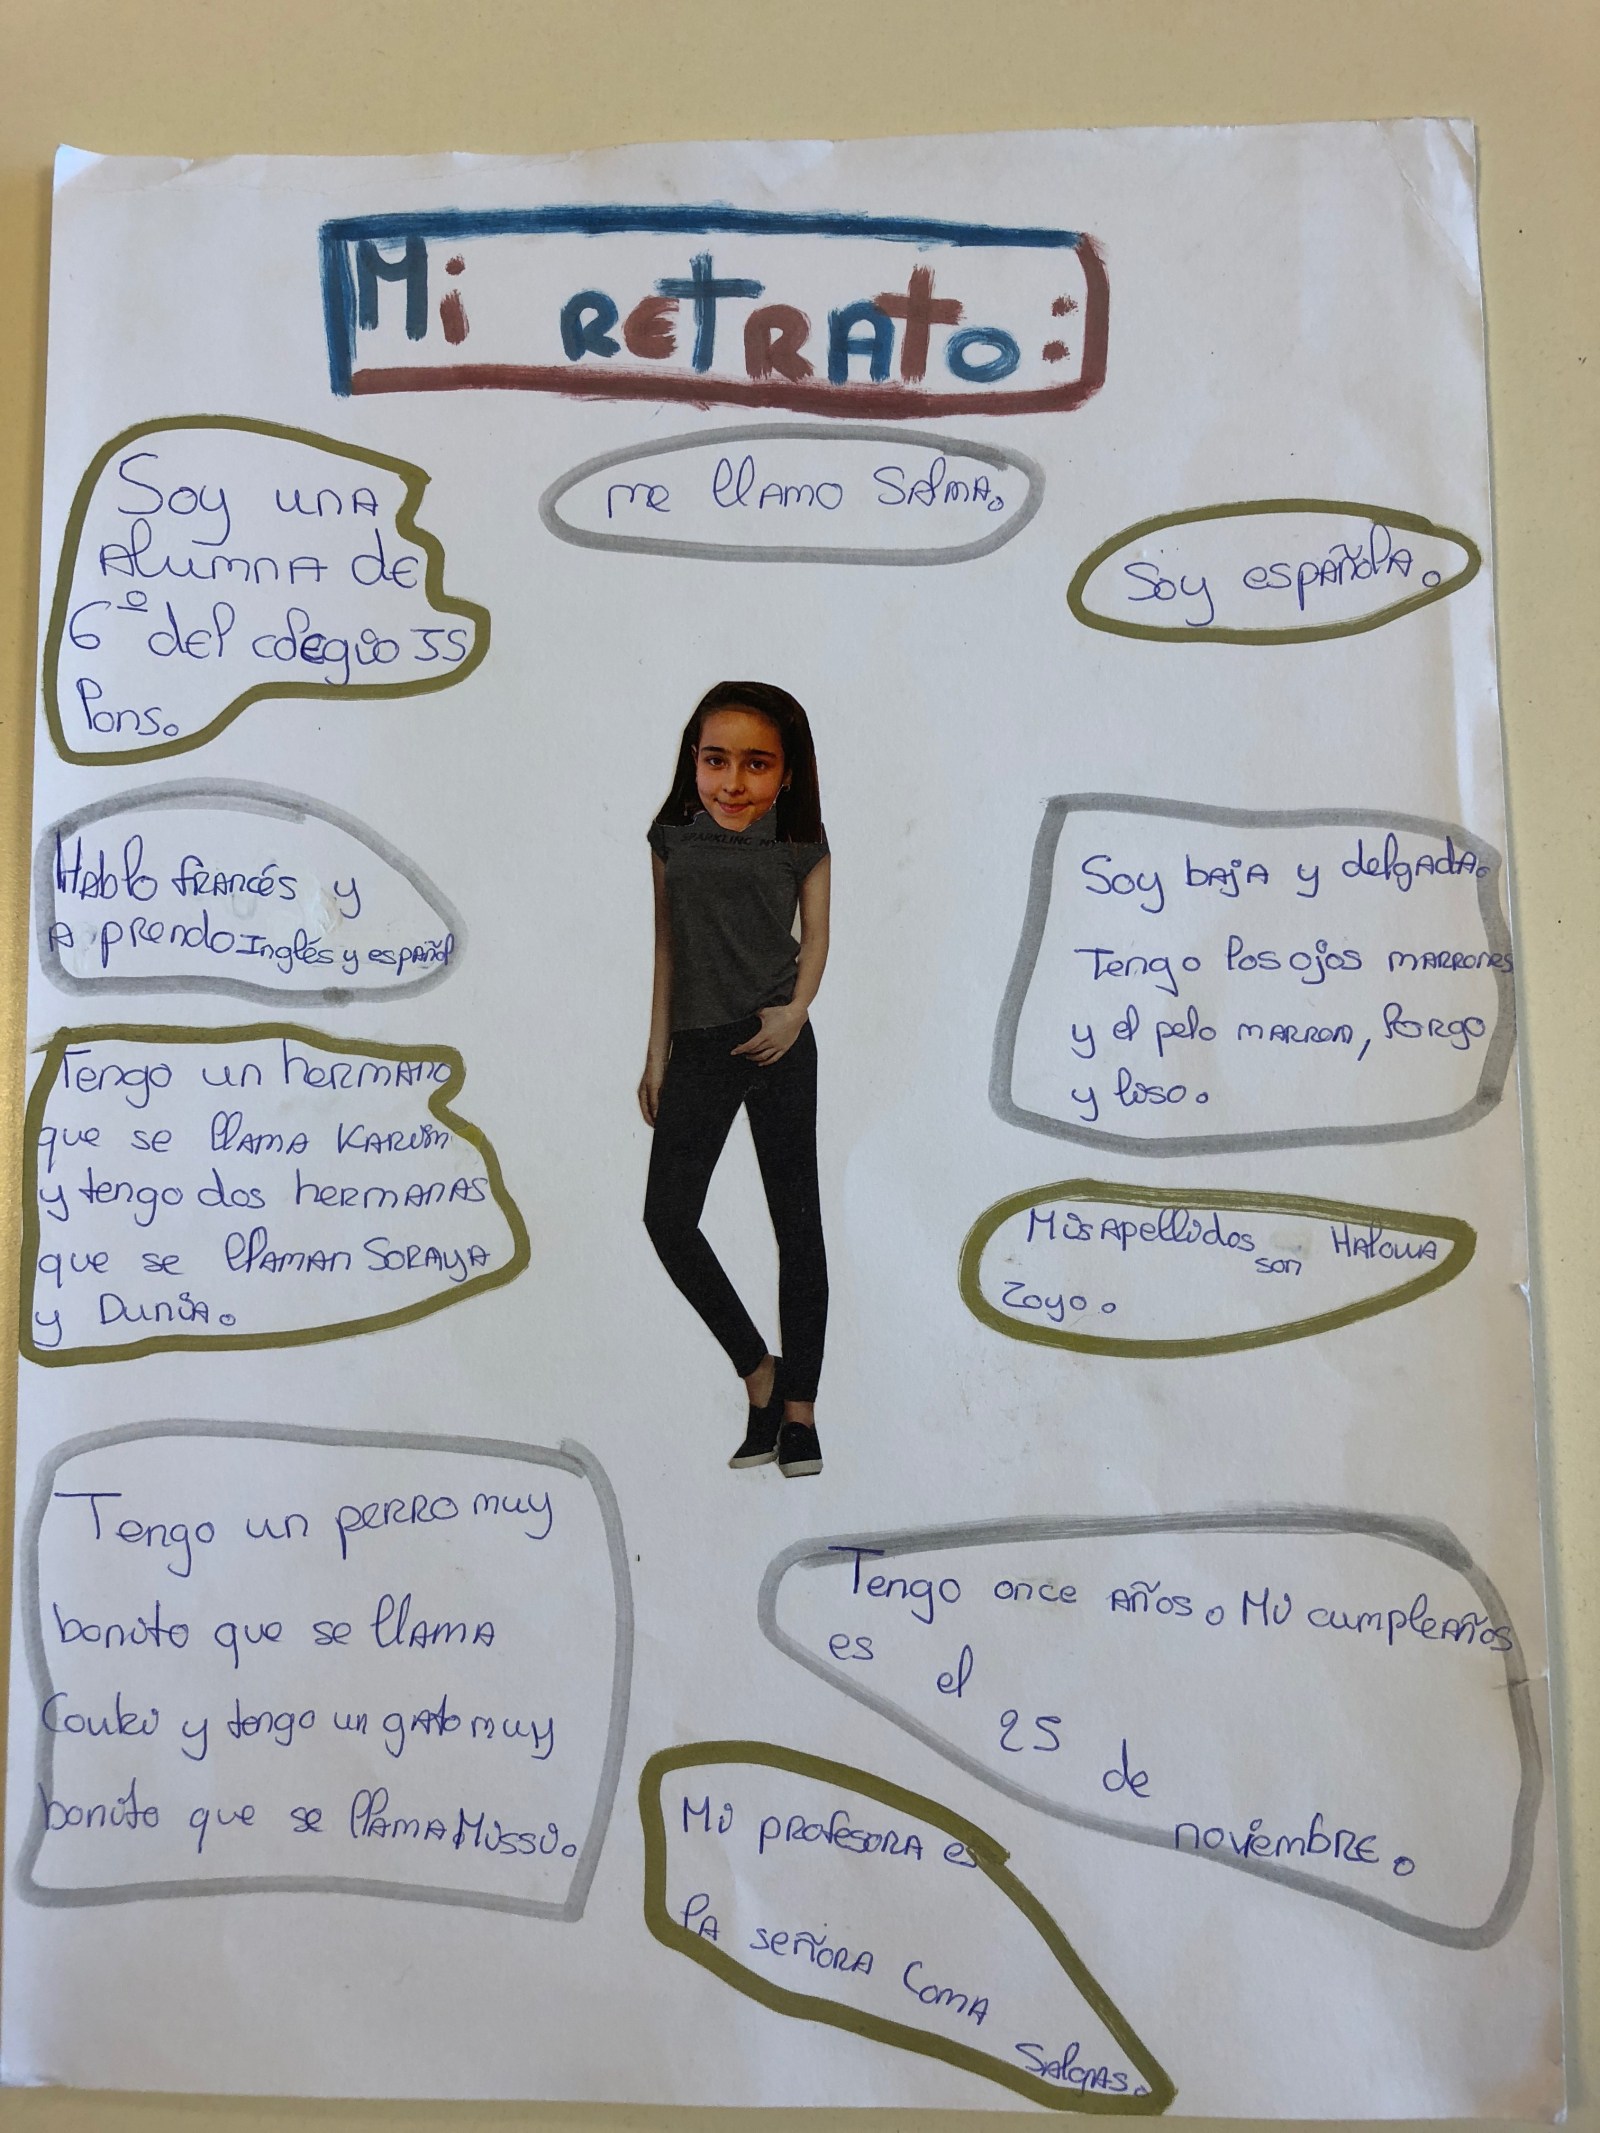 Mi RETRATO:
me llamo Salma.
Soy una
Alumna de
6º del colegio JS
Pons.
Soy española.
Hablo francés y
a prendo Inglés y español
Soy baja y delgada.
Tengo los ojos marrones
y el pelo marron, largo
y liso.
Tengo un hermano
que se llama Karim
y tengo dos hermanas
que se llaman Soraya
y Dunia.
Mis apellidos son
Zoyo.
Tengo un perro muy
bonito que se llama
Couki y tengo un gato muy
bonito que se llama Missi.
Tengo once años. Mi cumpleaños
es el
25
de
noviembre.
Mi profesora es
la señora Coma
Salgas.
SPARKLING